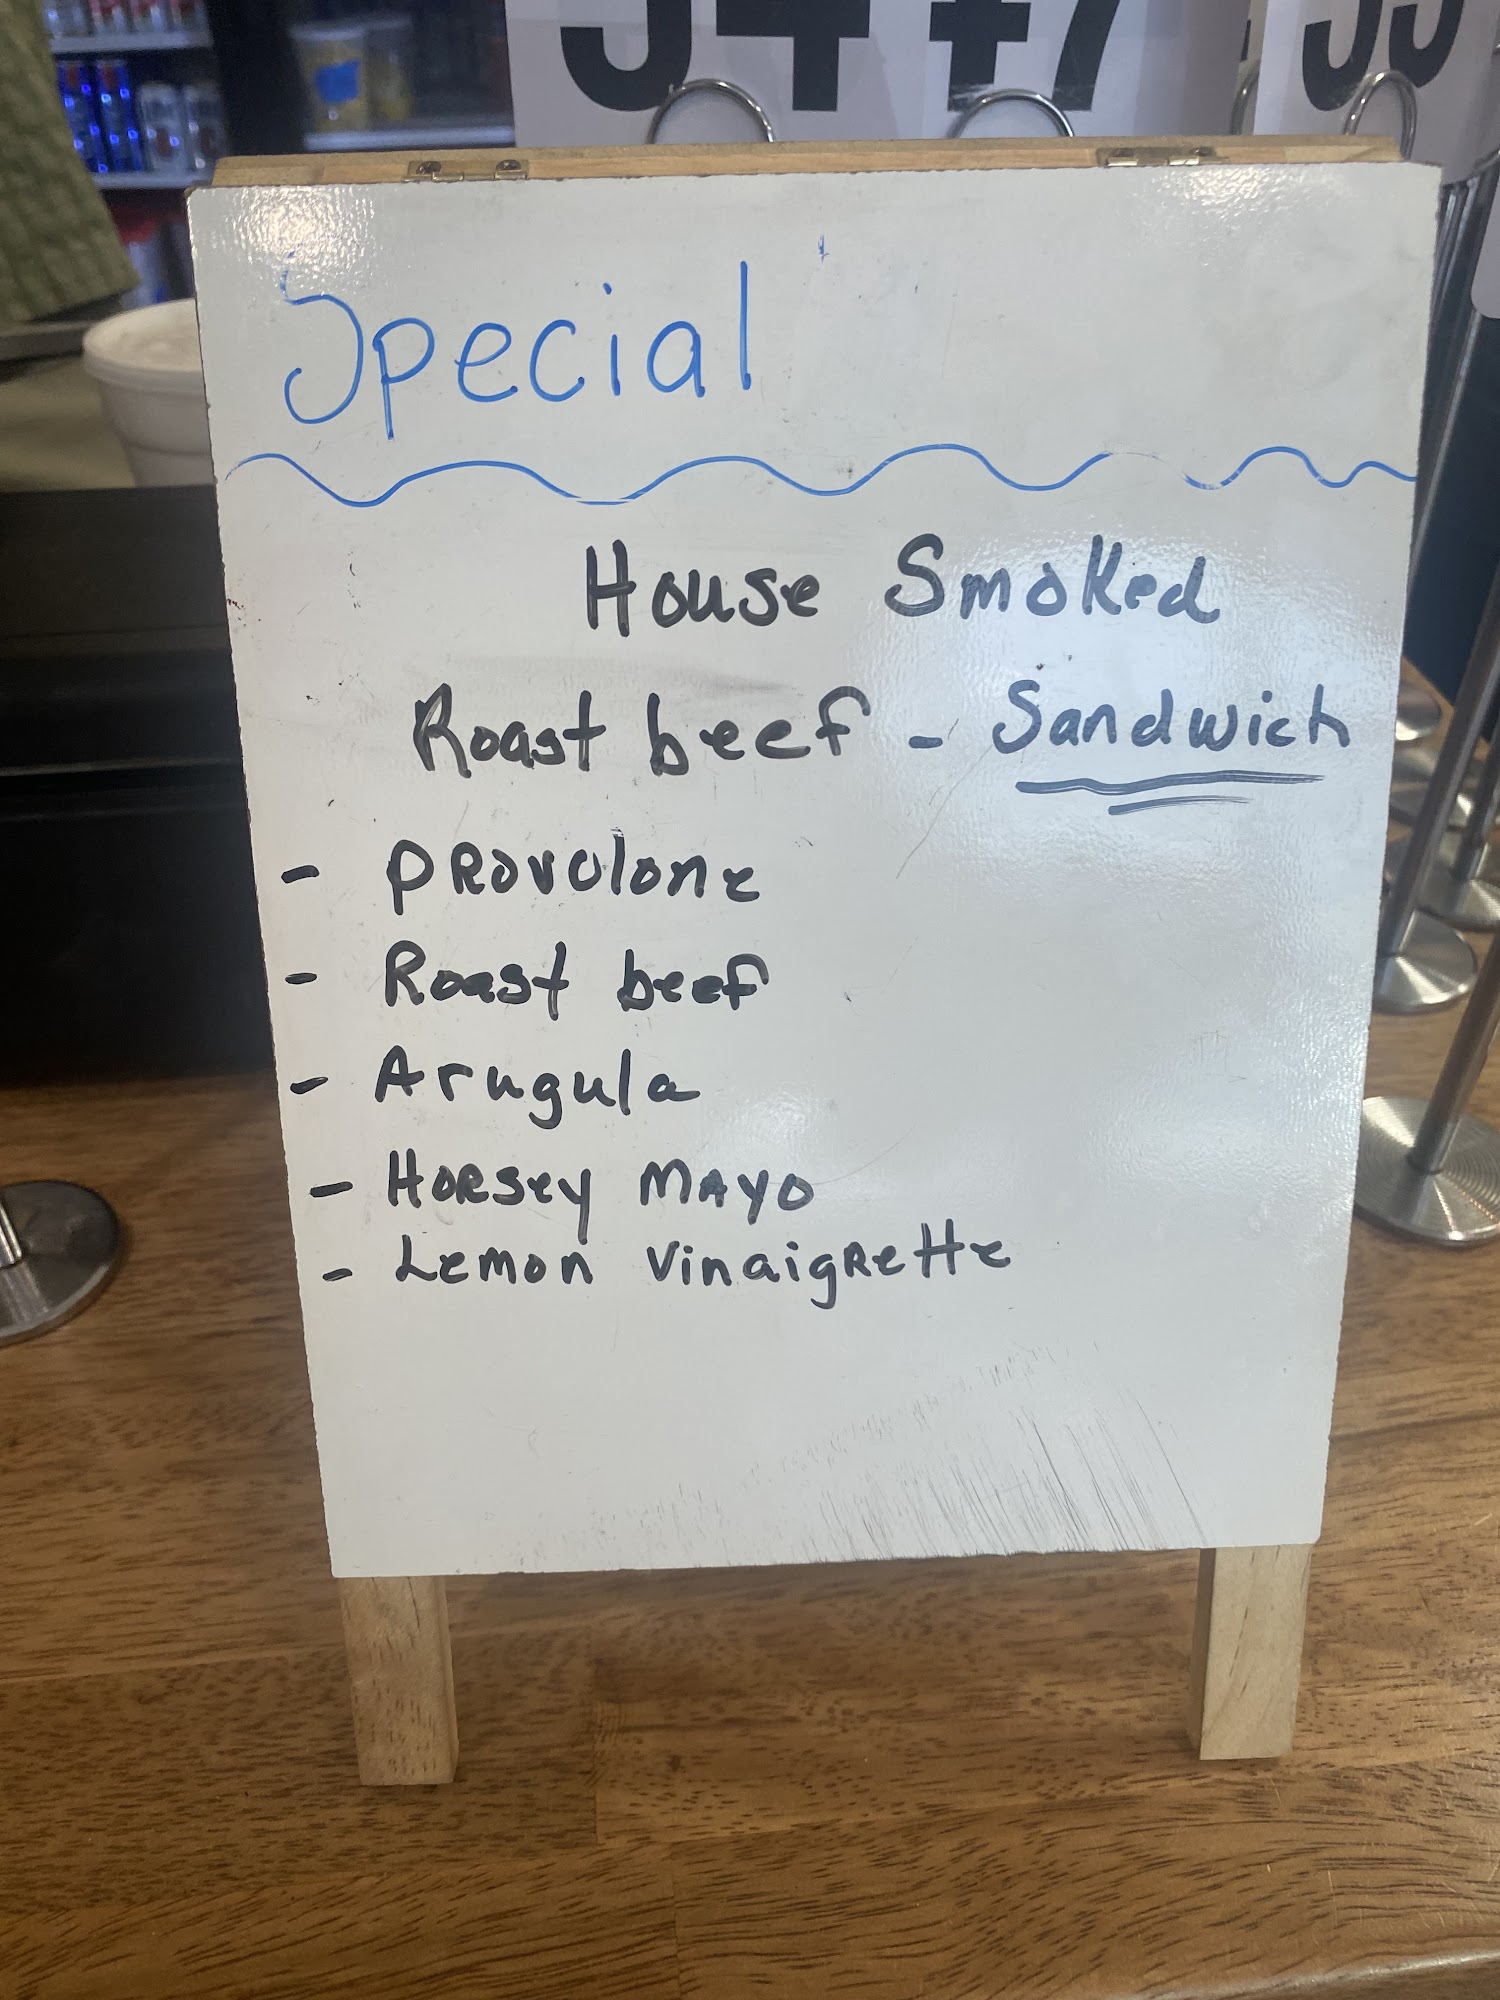 54 47 55
Special
House Smoked
Roast beef - Sandwich
- Provolone
- Roast beef
- Arugula
- Horsey Mayo
- Lemon Vinaigrette